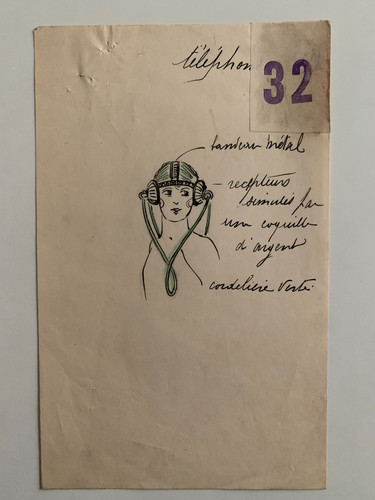 téléphon
32
bandeau métal
- récepteurs
simulés par
une coquille
d'argent
cordelière verte.